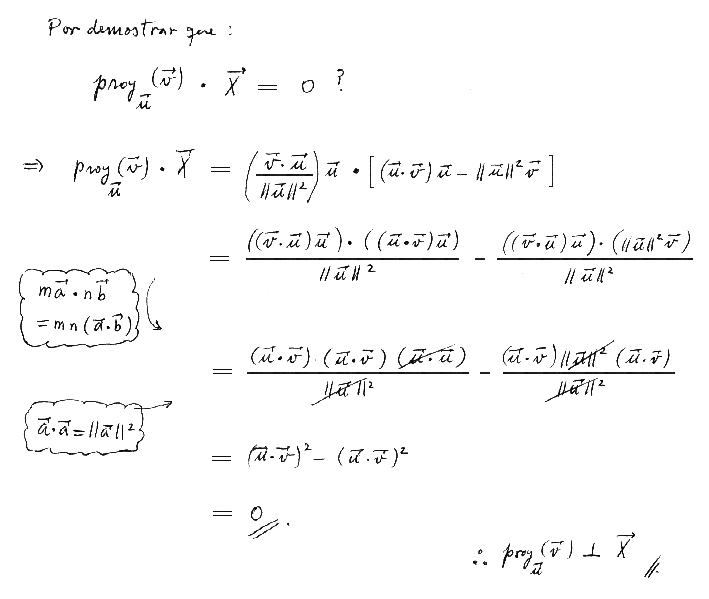 Por demostrar que :
proy_{\vec{u}}(\vec{v}) · \vec{X} = 0 ?
⇒ proy_{\vec{u}}(\vec{v}) · \vec{X} = ( \frac{\vec{v}·\vec{u}}{||\vec{u}||²} ) \vec{u} · [ (\vec{u}·\vec{v})\vec{u} - ||\vec{u}||²\vec{v} ]
= \frac{((\vec{v}·\vec{u})\vec{u})·((\vec{u}·\vec{v})\vec{u})}{||\vec{u}||²} - \frac{((\vec{v}·\vec{u})\vec{u})·(||\vec{u}||²\vec{v})}{||\vec{u}||²}
m\vec{a}·n\vec{b}
=mn(\vec{a}·\vec{b})
= \frac{(\vec{u}·\vec{v})·(\vec{u}·\vec{v})(\vec{u}·\vec{u})}{||\vec{u}||²} - \frac{(\vec{u}·\vec{v})||\vec{u}||²(\vec{u}·\vec{v})}{||\vec{u}||²}
\vec{a}·\vec{a}=||\vec{a}||²
= (\vec{u}·\vec{v})² - (\vec{u}·\vec{v})²
= 0 .
∴ proy_{\vec{u}}(\vec{v}) ⊥ \vec{X} //.